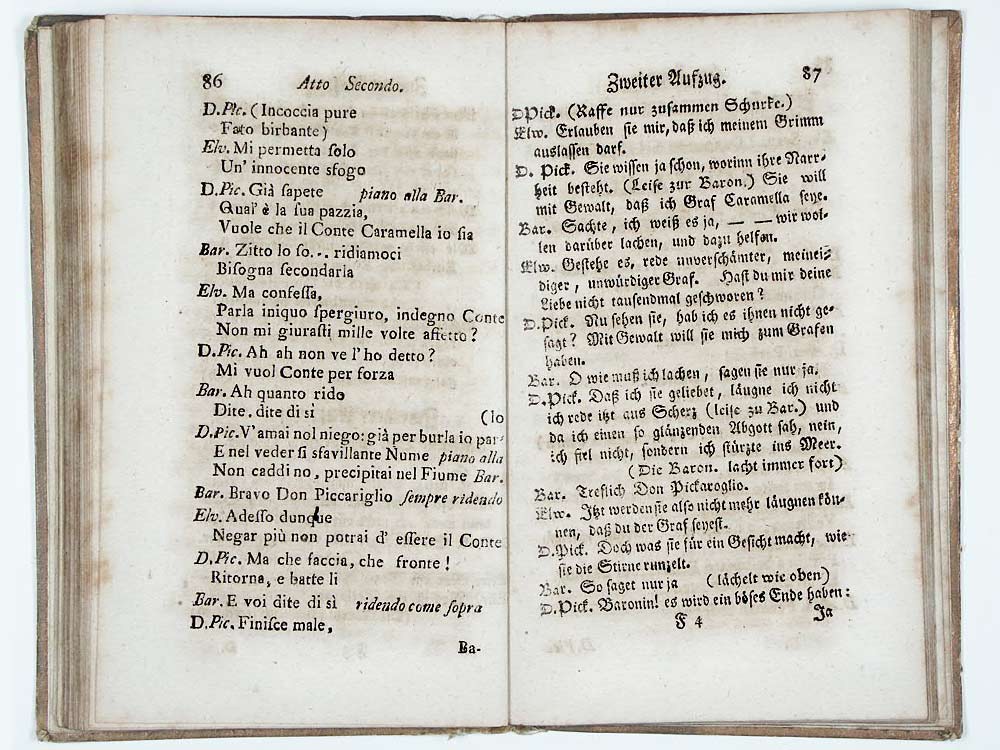 86 Atto Secondo.
D.Pic. (Incoccia pure
Fato birbante)
Elv. Mi permetta ſolo
Un' innocente sfogo
D.Pic. Già ſapete piano alla Bar.
Qual' è la ſua pazzia,
Vuole che il Conte Caramella io ſia
Bar. Zitto lo ſo... ridiamoci
Biſogna ſecondarla
Elv. Ma confeſſa,
Parla iniquo ſpergiuro, indegno Conte
Non mi giuraſti mille volte affetto?
D.Pic. Ah ah non ve l'ho detto?
Mi vuol Conte per forza
Bar. Ah quanto rido
Dite, dite di sì (lo
D.Pic. V'amai nol niego: già per burla io par-
E nel veder ſi sfavillante Nume piano alla
Non caddi no, precipitai nel Fiume Bar.
Bar. Bravo Don Piccariglio ſempre ridendo
Elv. Adeſſo dunque
Negar più non potrai d' eſſere il Conte
D.Pic. Ma che faccia, che fronte!
Ritorna, e batte li
Bar. E voi dite di sì ridendo come ſopra
D.Pic. Finiſce male,
Ba-
Zweiter Aufzug. 87
D.Pick. (Raffe nur zuſammen Schurke.)
Elw. Erlauben ſie mir, daß ich meinem Grimm
auslaſſen darf.
D. Pick. Sie wiſſen ja ſchon, worinn ihre Narr-
heit beſteht. (Leiſe zur Baron.) Sie will
mit Gewalt, daß ich Graf Caramella ſeye.
Bar. Sachte, ich weiß es ja, — — wir wol-
len darüber lachen, und dazu helfen.
Elw. Geſtehe es, rede unverſchämter, meinei-
diger, unwürdiger Graf. Haſt du mir deine
Liebe nicht tauſendmal geſchworen?
D.Pick. Nu ſehen ſie, hab ich es ihnen nicht ge-
ſagt? Mit Gewalt will ſie mich zum Grafen
haben.
Bar. O wie muß ich lachen, ſagen ſie nur ja.
D.Pick. Daß ich ſie geliebet, läugne ich nicht
ich rede itzt aus Scherz (leiſe zu Bar.) und
da ich einen ſo glänzenden Abgott ſah, nein,
ich fiel nicht, ſondern ich ſtürzte ins Meer.
(Die Baron. lacht immer fort)
Bar. Treflich Don Pickaroglio.
Elw. Jtzt werden ſie alſo nicht mehr läugnen kön-
nen, daß du der Graf ſeyeſt.
D.Pick. Doch was ſie für ein Geſicht macht, wie
ſie die Stirne runzelt.
Bar. So ſaget nur ja (lächelt wie oben)
D.Pick. Baronin! es wird ein böſes Ende haben:
F 4 Ja